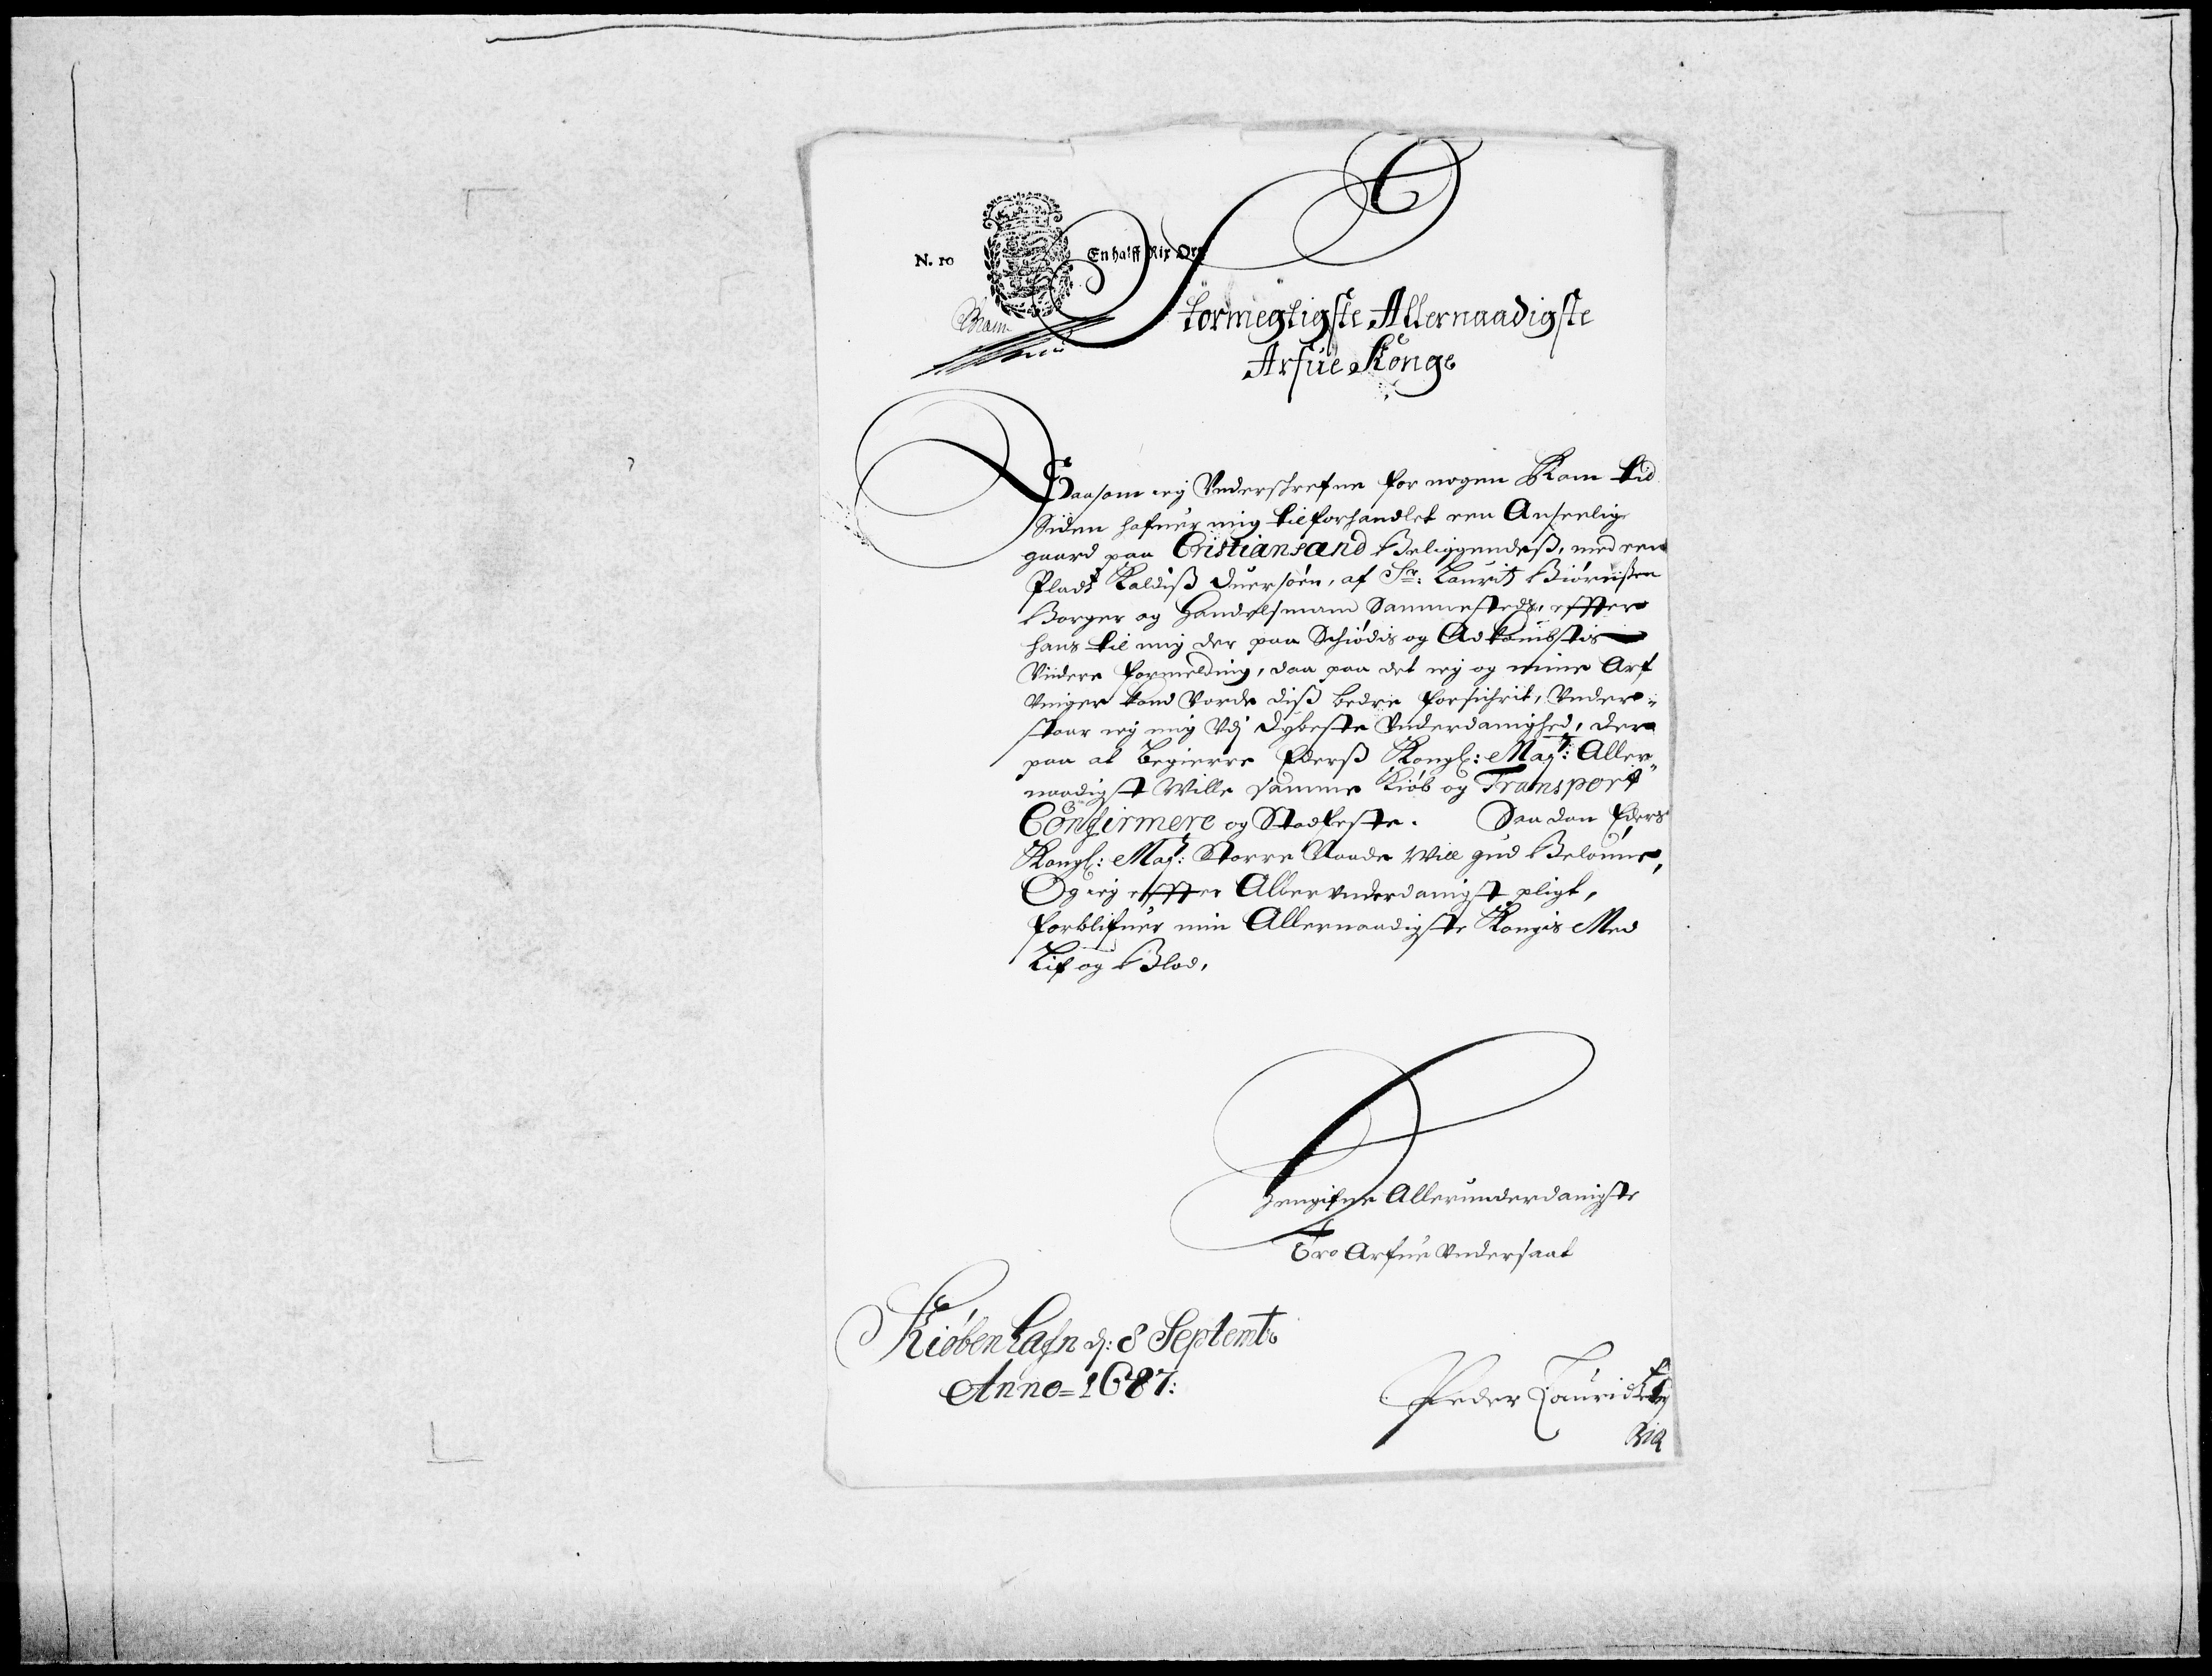 N. 10 En halff Rix Ort
Stormegtigste Allernaadigste
Arfue Konge
Saasom ieg Underskrefne for nogen Kom tid
Siden hafuer mig tilforhandlet een Anseelig
gaard paa Cristiansand Beliggendeß, med een
Plads Kaldiß Duersøen, af Sr: Laurits Biørnßen
Borger og Handelsmand Sammesteds, effter
hans til mig der paa Schiødis og Adkombstis
Viidere formelding, daa paa det ieg og mine Arf
Vinger kand Vorde diß bedre forsichrit, Under-
staar ieg mig Udj Dybeste Underdanighed, der
paa at begierre Ederß Kongl: Mayt: Aller-
naadigst Wille samme Kiøb og Transport
Confirmere og Stadfeste. Saadan Eders
Kongl: Mayt: Storre Naade Will gud Belønne,
Og ieg effter Allerunderdanigst pligt,
forblifuer min Allernaadigste Kongis Med
Lif og Blod,
Hengifne Allerunderdanigste
Tro Arfue Undersaat
Kiøbenhafn d: 8 Septemb
Anno = 1687:
Peder Laurids